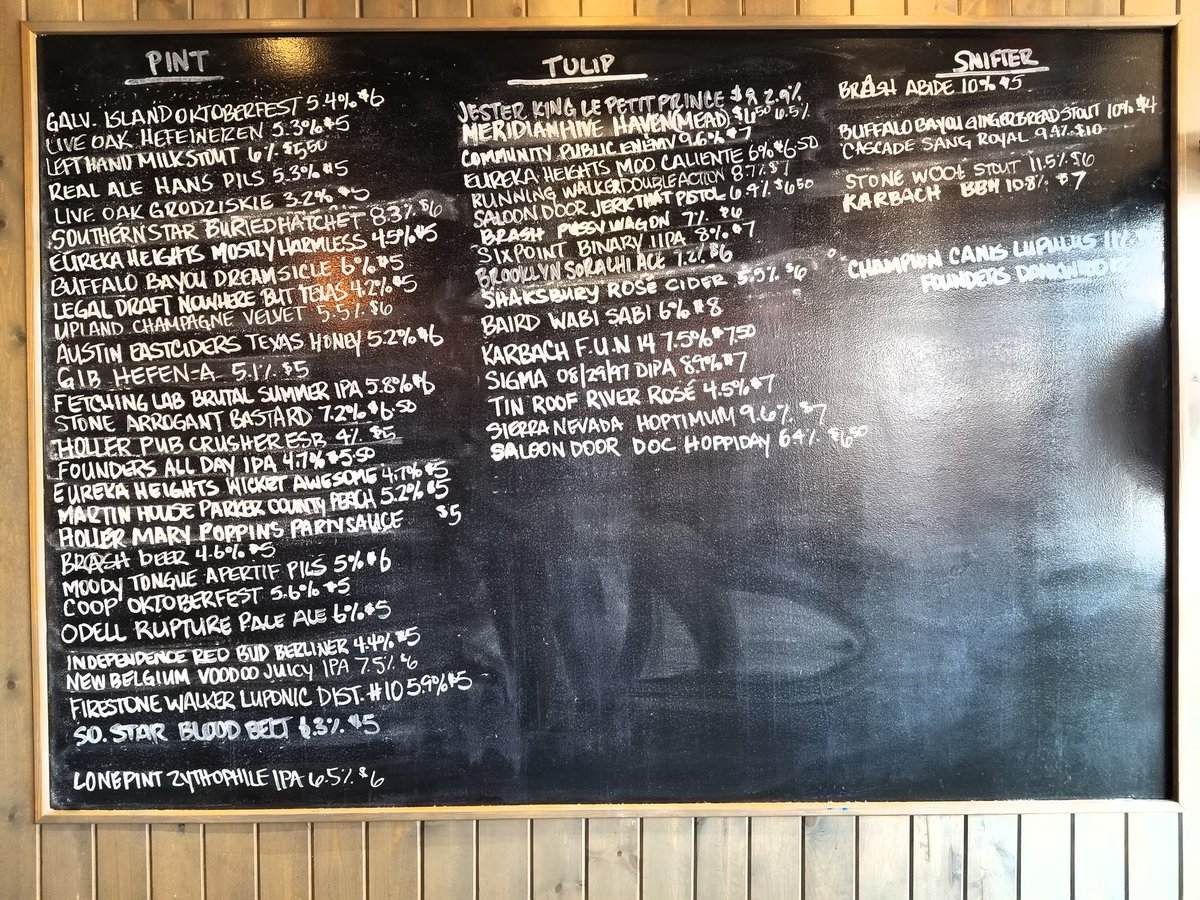 PINT
GALV. ISLAND OKTOBERFEST 5.4% $6
LIVE OAK HEFEWEIZEN 5.3% $5
LEFT HAND MILK STOUT 6% $5.50
REAL ALE HANS PILS 5.3% $5
LIVE OAK GRODZISKIE 3.2% $5
SOUTHERN STAR BURIED HATCHET 8.3% $6
EUREKA HEIGHTS MOSTLY HARMLESS 4.5% $5
BUFFALO BAYOU DREAMSICLE 6% $5
LEGAL DRAFT NOWHERE BUT TEXAS 4.2% $5
UPLAND CHAMPAGNE VELVET 5.5% $6
AUSTIN EASTCIDERS TEXAS HONEY 5.2% $6
GIB HEFEN-A 5.1% $5
FETCHING LAB BRUTAL SUMMER IPA 5.8% $6
STONE ARROGANT BASTARD 7.2% $6.50
HOLLER PUB CRUSHER ESB 4% $5
FOUNDERS ALL DAY IPA 4.7% $5.50
EUREKA HEIGHTS WICKET AWESOME 4.7% $5
MARTIN HOUSE PARKER COUNTY PEACH 5.2% $5
HOLLER MARY POPPINS PARTY SAUCE $5
BRASH BEER 4.6% $5
MOODY TONGUE APERTIF PILS 5% $6
COOP OKTOBERFEST 5.6% $5
ODELL RUPTURE PALE ALE 6% $5
INDEPENDENCE RED BUD BERLINER 4.4% $5
NEW BELGIUM VOODOO JUICY IPA 7.5% $6
FIRESTONE WALKER LUPONIC DIST. #10 5.9% $5
SO. STAR BLOOD BELT 6.3% $5
LONEPINT ZYTHOPHILE IPA 6.5% $6
TULIP
JESTER KING LE PETIT PRINCE $8 2.9%
MERIDIANHIVE HAVEN (MEAD) $6.50 6.5%
COMMUNITY PUBLIC ENEMY 9.6% $7
EUREKA HEIGHTS MOO CALIENTE 6% $6.50
RUNNING WALKER DOUBLE ACTION 8.7% $7
SALOON DOOR JERK THAT PISTOL 6.4% $6.50
BRASH PUSSY WAGON 7% $6
SIXPOINT BINARY IIPA 8% $7
BROOKLYN SORACHI ACE 7.2% $6
SHAKSBURY ROSÉ CIDER 5.5% $6
BAIRD WABI SABI 6% $8
KARBACH F.U.N 14 7.5% $7.50
SIGMA 08/29/97 DIPA 8.9% $7
TIN ROOF RIVER ROSÉ 4.5% $7
SIERRA NEVADA HOPTIMUM 9.6% $7
SALOON DOOR DOC HOPPIDAY 6.4% $6.50
SNIFTER
BRASH ABIDE 10% $5
BUFFALO BAYOU GINGERBREAD STOUT 10% $4
CASCADE SANG ROYAL 9.9% $10
STONE WOOT STOUT 11.5% $6
KARBACH BBH 10.8% $7
CHAMPION CANIS LUPULUS 11%
FOUNDERS